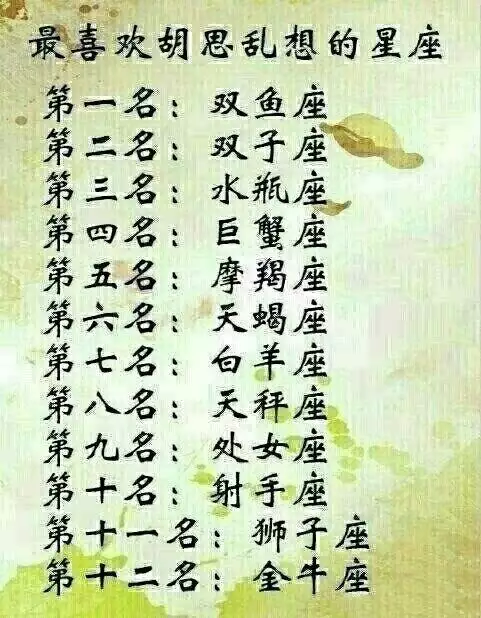 最喜欢胡思乱想的星座
第一名：双鱼座
第二名：双子座
第三名：水瓶座
第四名：巨蟹座
第五名：摩羯座
第六名：天蝎座
第七名：白羊座
第八名：天秤座
第九名：处女座
第十名：射手座
第十一名：狮子座
第十二名：金牛座